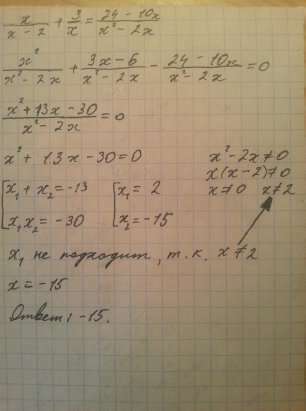 x/(x-2) + 3/x = (24-10x)/(x²-2x)
x²/(x²-2x) + (3x-6)/(x²-2x) - (24-10x)/(x²-2x) = 0
(x²+13x-30)/(x²-2x) = 0
x²+13x-30=0 x²-2x≠0
x(x-2)≠0
{x₁+x₂=-13 {x₁=2 x≠0 x≠2
x₁x₂=-30 x₂=-15
x₁ не подходит, т.к. x≠2
x=-15
Ответ: -15.